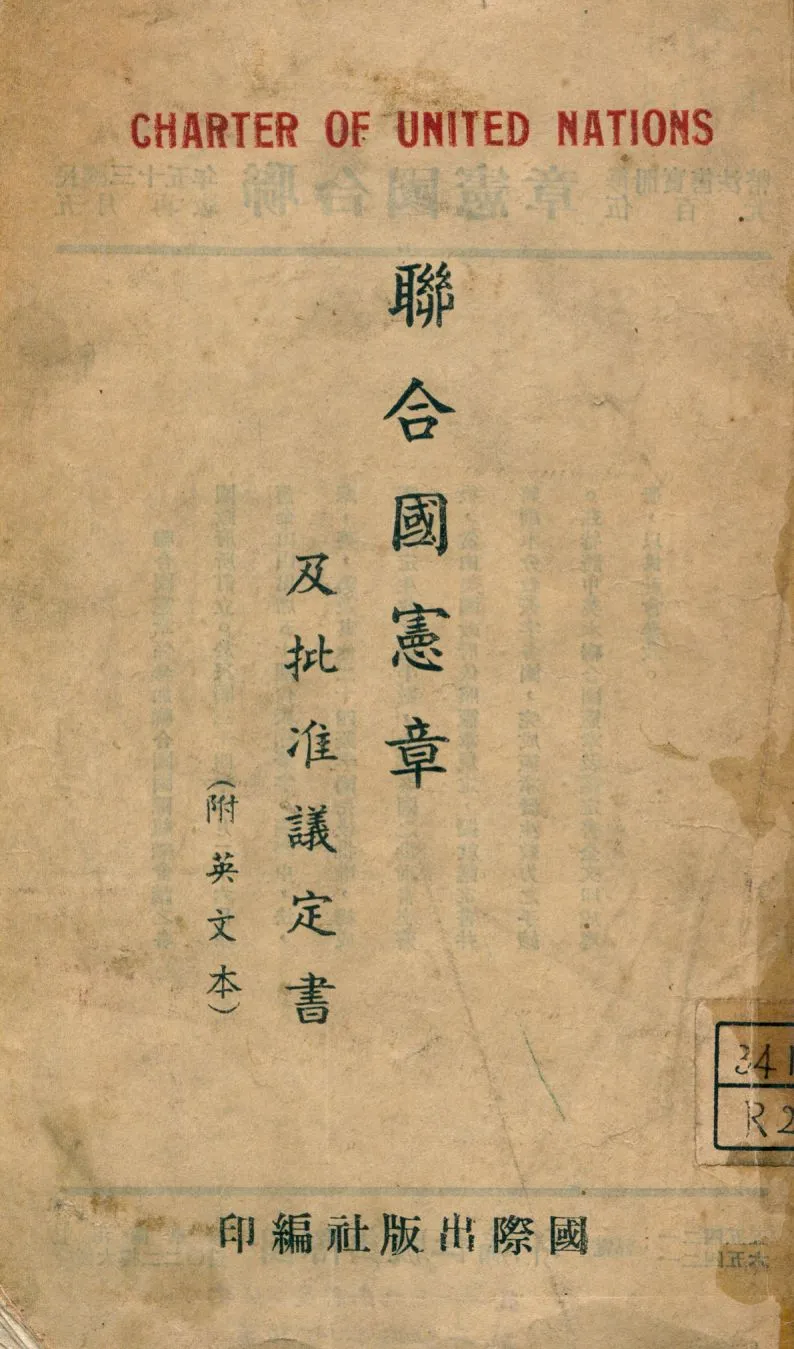 CHARTER OF UNITED NATIONS
聯合國憲章
及批准議定書
(附英文本)
341
R2
國際出版社編印